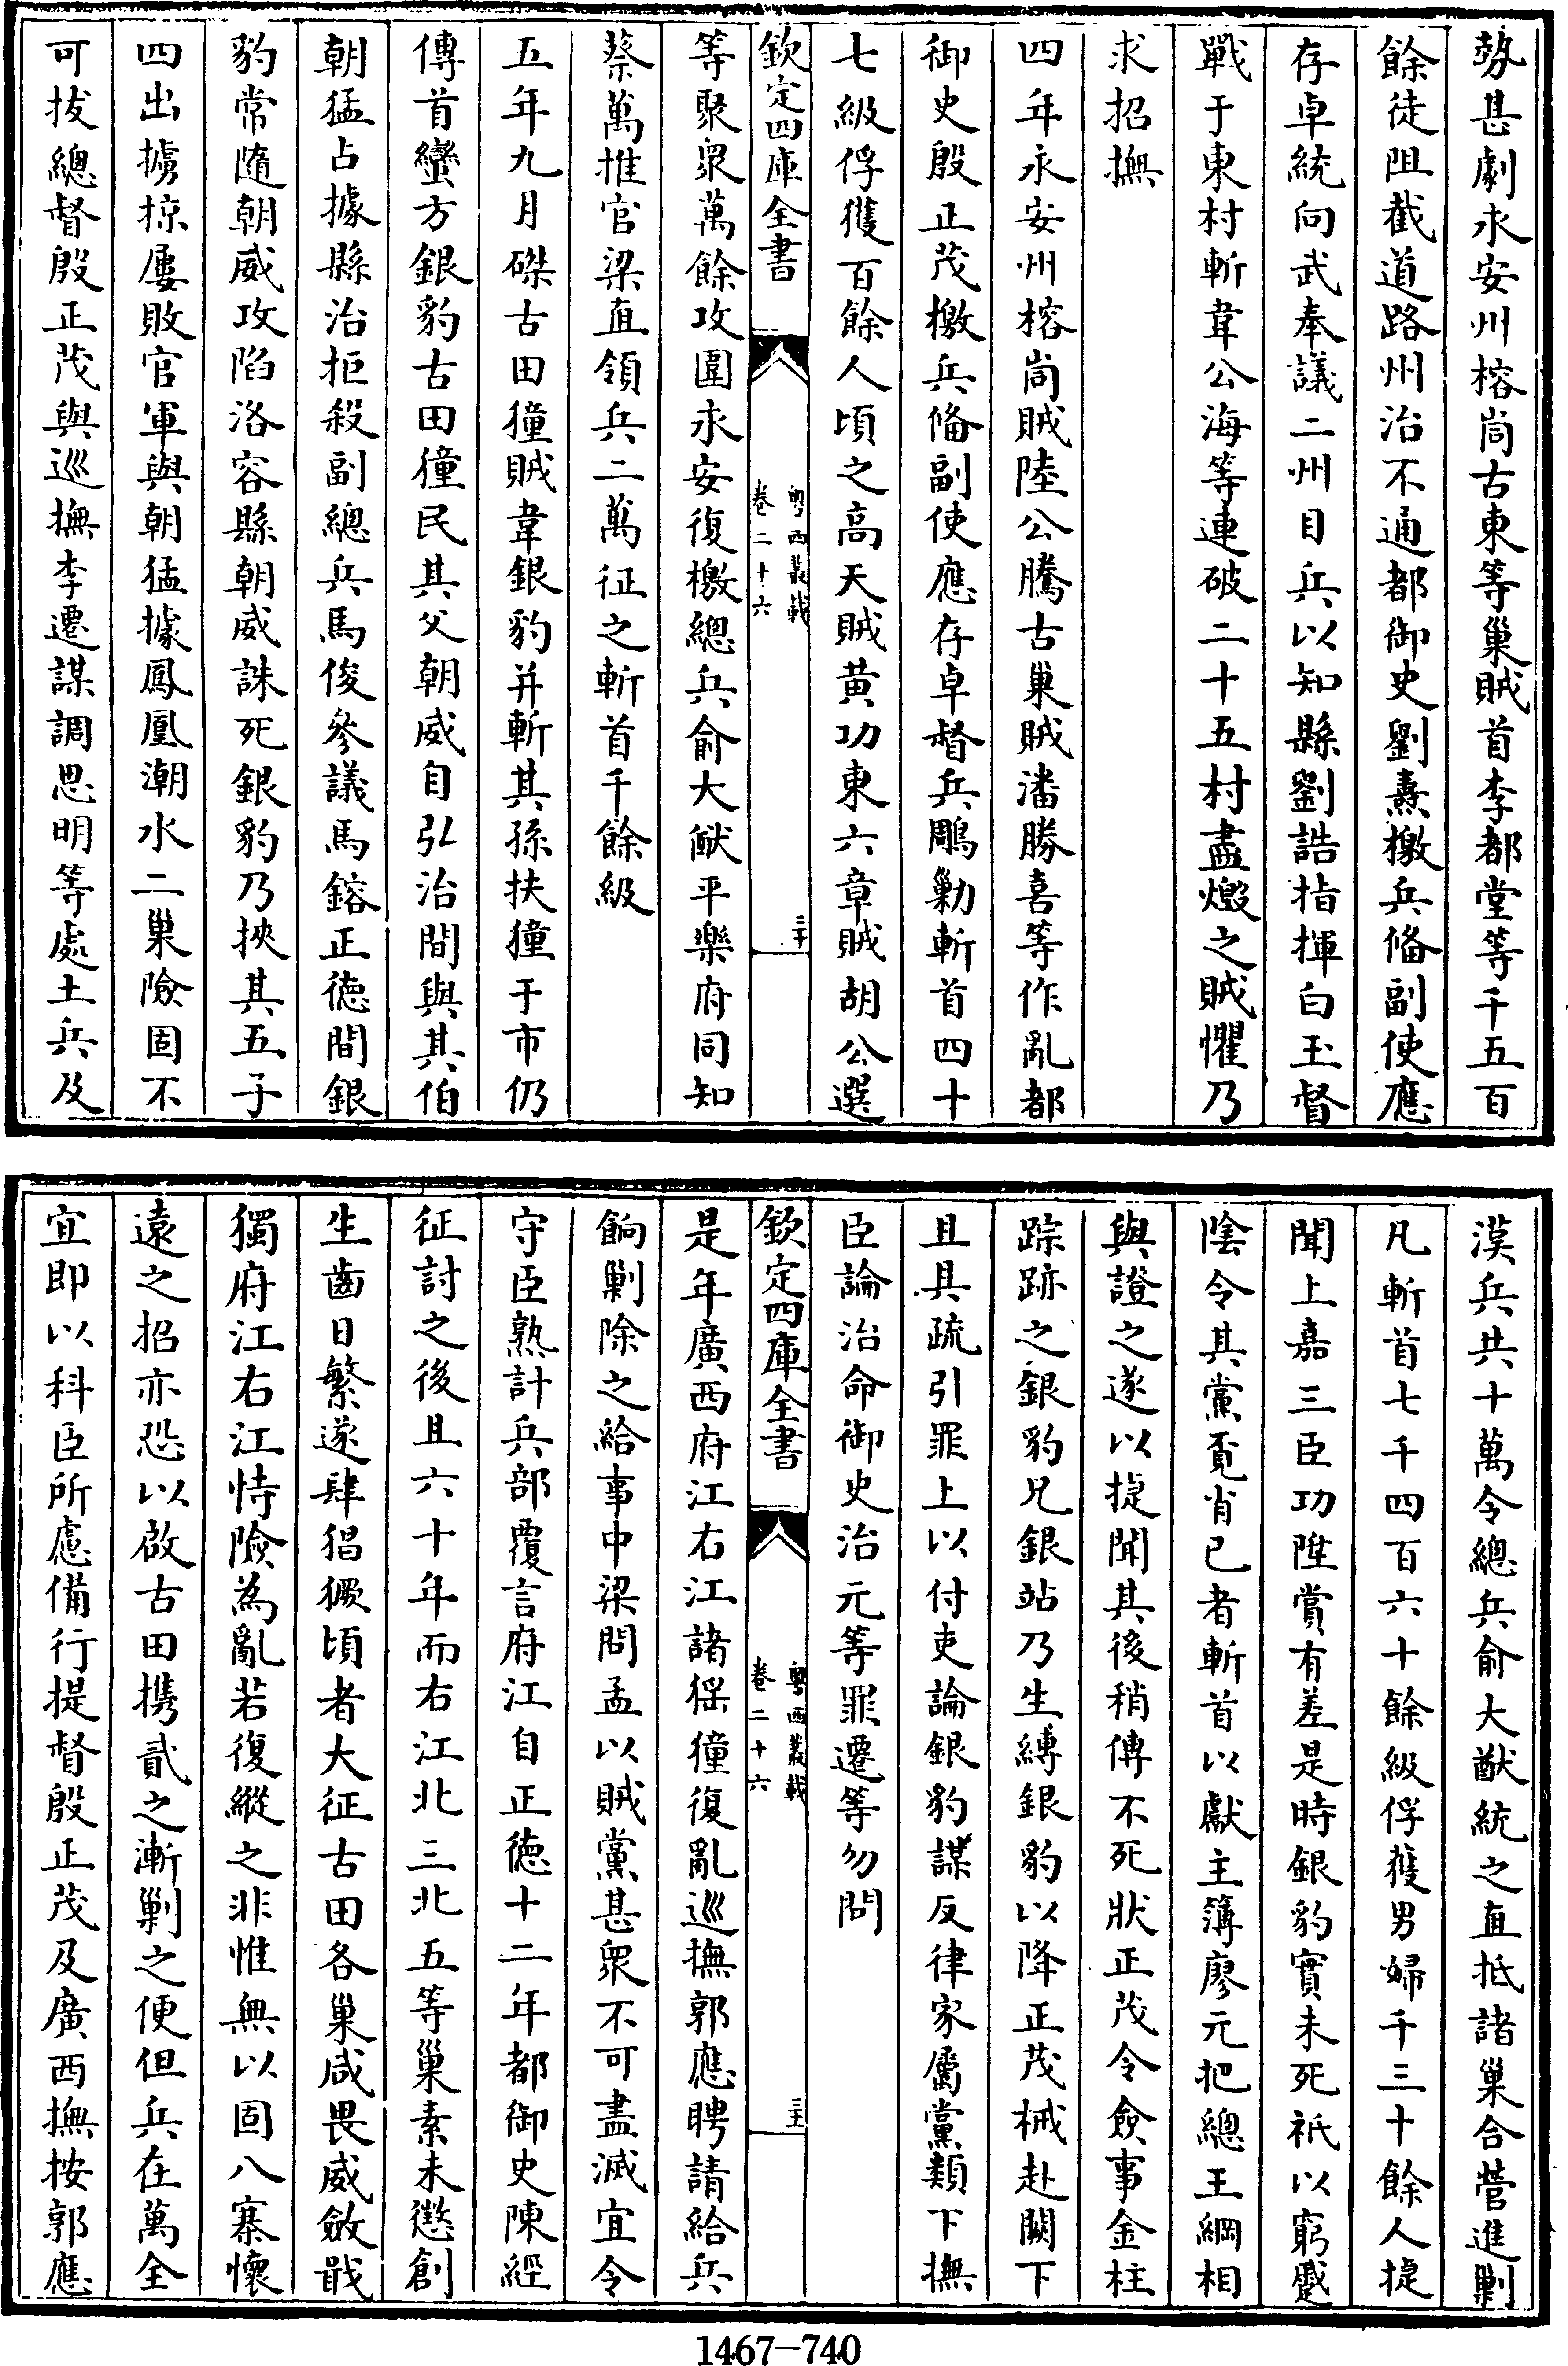 勢甚劇永安州榕峝古東等巢賊首李都堂等千五百
餘徒阻截道路州治不通都御史劉燾檄兵備副使應
存卓統向武奉議二州目兵以知縣劉誥指揮白玉督
戰于東村斬韋公海等連破二十五村盡燬之賊懼乃
求招撫
四年永安州榕峝賊陸公騰古巢賊潘勝喜等作亂都
御史殷正茂檄兵備副使應存卓督兵鵰勦斬首四十
七級俘獲百餘人頃之高天賊黄功東六章賊胡公選
欽定四庫全書
粤西叢載
卷二十六
三十
等聚衆萬餘攻圍永安復檄總兵俞大猷平樂府同知
蔡萬推官梁直領兵二萬征之斬首千餘級
五年九月磔古田獞賊韋銀豹并斬其孫扶獞于市仍
傳首蠻方銀豹古田獞民其父朝威自弘治間與其伯
朝猛占據縣治拒殺副總兵馬俊參議馬鎔正德間銀
豹常隨朝威攻陷洛容縣朝威誅死銀豹乃挾其五子
四出擄掠屢敗官軍與朝猛據鳳凰潮水二巢險固不
可拔總督殷正茂與巡撫李遷謀調思明等處土兵及
漢兵共十萬令總兵俞大猷統之直抵諸巢合營進剿
凡斬首七千四百六十餘級俘獲男婦千三十餘人捷
聞上嘉三臣功陞賞有差是時銀豹實未死祇以窮蹙
陰令其黨覔肖已者斬首以獻主簿廖元把總王綱相
與證之遂以捷聞其後稍傳不死狀正茂令僉事金柱
踪跡之銀豹兄銀站乃生縛銀豹以降正茂械赴闕下
且具疏引罪上以付吏論銀豹謀反律家屬黨類下撫
臣論治命御史治元等罪遷等勿問
欽定四庫全書
粤西叢載
卷二十六
三十一
是年廣西府江右江諸猺獞復亂巡撫郭應聘請給兵
餉剿除之給事中梁問孟以賊黨甚衆不可盡滅宜令
守臣熟計兵部覆言府江自正德十二年都御史陳經
征討之後且六十年而右江北三北五等巢素未懲創
生齒日繁遂肆猖獗頃者大征古田各巢咸畏威斂戢
獨府江右江恃險為亂若復縱之非惟無以固八寨懷
遠之招亦恐以啟古田攜貳之漸剿之便但兵在萬全
宜即以科臣所慮備行提督殷正茂及廣西撫按郭應
1467—740